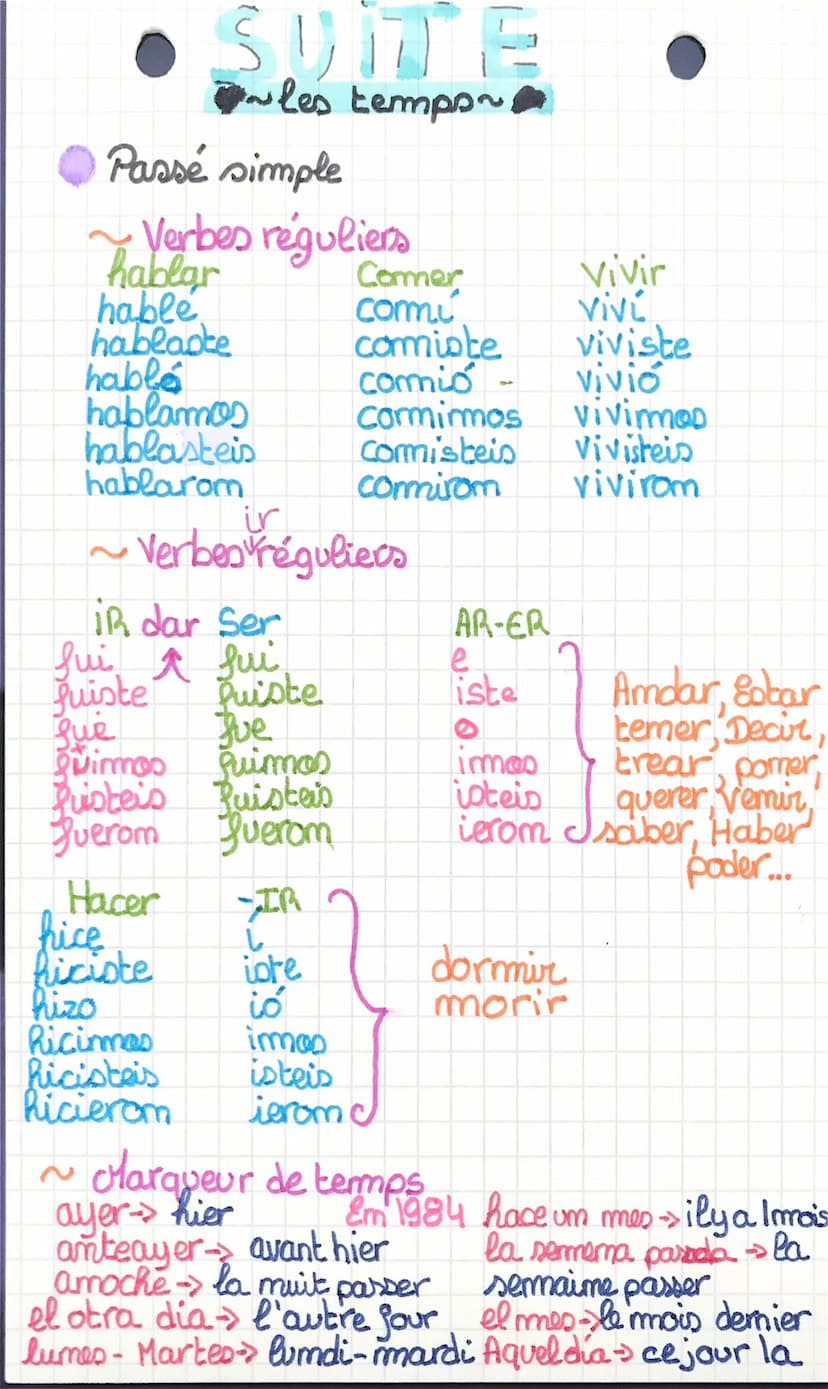 SUITE
~les temps~
Passé simple
~ Verbes réguliers
hablar Comer vivir
hablé comí viví
hablaste comiste viviste
habló comió vivió
hablamos comimos vivimos
hablasteis comisteis vivisteis
hablaron comiron viviron
~ Verbes irréguliers
iR dar Ser AR-ER
fui fui e
fuiste fuiste iste Andar, Estar
fue fue o tener, Decir,
fuimos fuimos imos traer, poner,
fuisteis fuisteis isteis querer, Venir,
fueron fueron ieron saber, Haber
poder...
Hacer -IR
hice í
hiciste iste dormir
hizo ió morir
hicimos imos
hicisteis isteis
hicieron ieron
~ Marqueur de temps
ayer-> hier En 1984 hace un mes -> il y a 1 mois
anteayer-> avant hier la semena pasada -> la
anoche -> la nuit passer semaine passer
el otra día -> l'autre jour el mes -> le mois dernier
lunes - Martes -> lundi - mardi Aquel día -> ce jour la